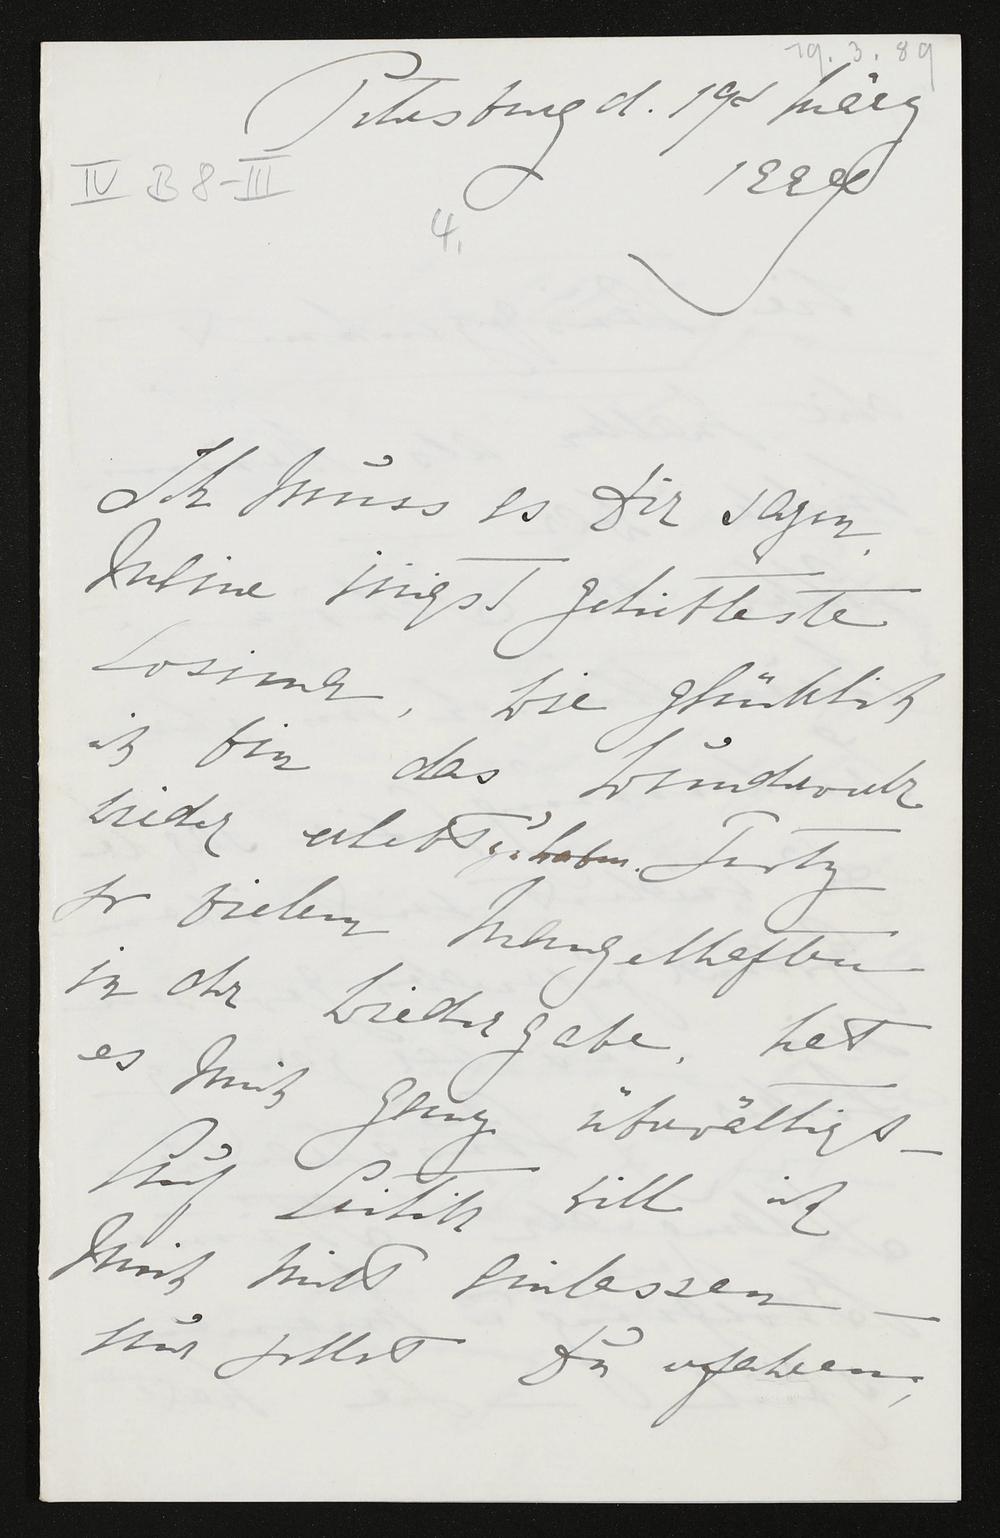 19. 3. 89
Petersburg d. 19t März
1889
IV B 8-III
4.
Ich muss es Dir sagen,
Meine innigst geliebteste
Cosima, wie glücklich
ich bin das Wunderwerk
wieder erlebt zu haben. Trotz
so vielem Mangelhaften
in der Wiedergabe, hat
es mich ganz überwältigt –
Auf Critik will ich
mich nicht einlassen –
nur sollst Du erfahren,